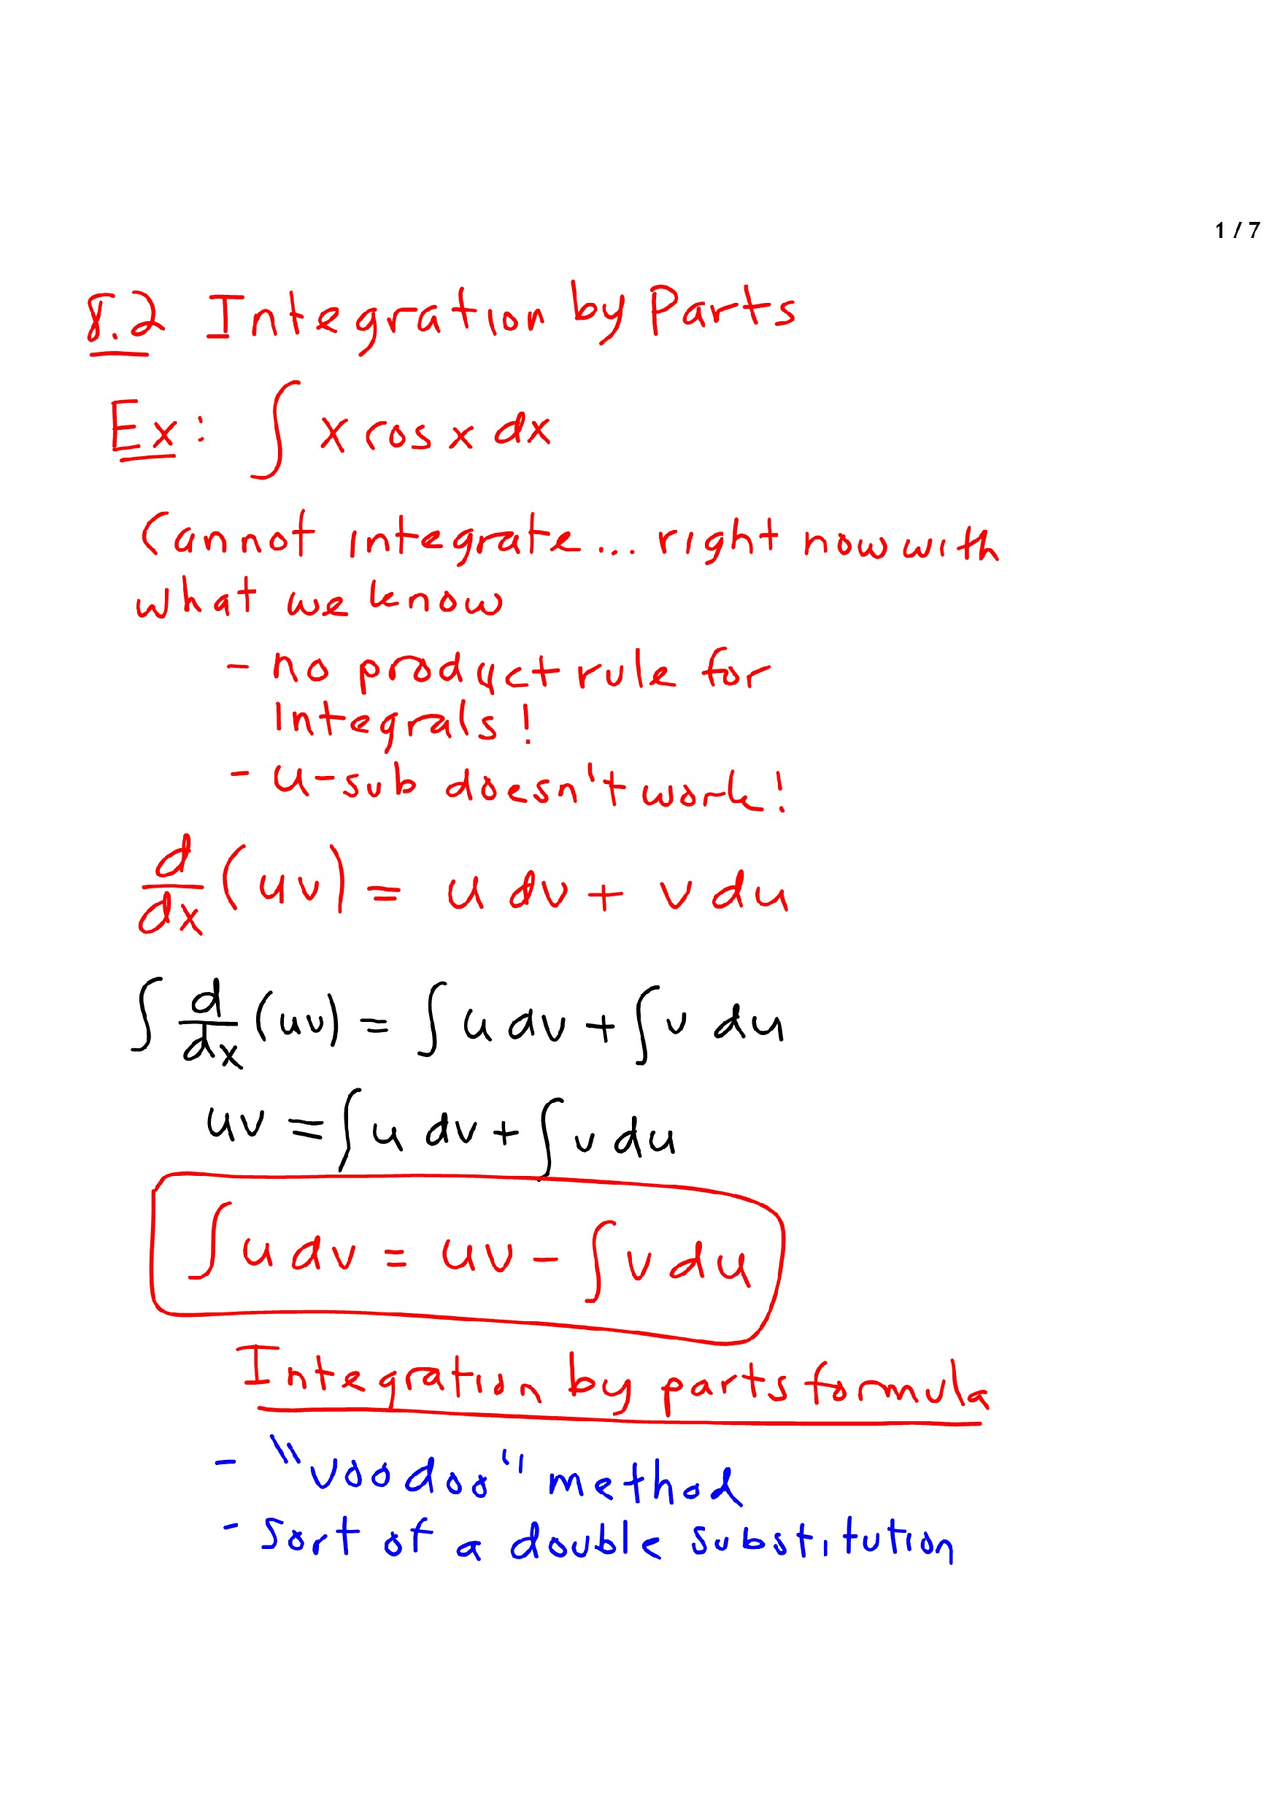 1 / 7
8.2 Integration by Parts
Ex: ∫ x cos x dx
Cannot integrate... right now with
what we know
- no product rule for
integrals!
- u-sub doesn't work!
d/dx (uv) = u dv + v du
∫ d/dx (uv) = ∫ u dv + ∫ v du
uv = ∫ u dv + ∫ v du
∫ u dv = uv - ∫ v du
Integration by parts formula
- "voodoo" method
- sort of a double substitution